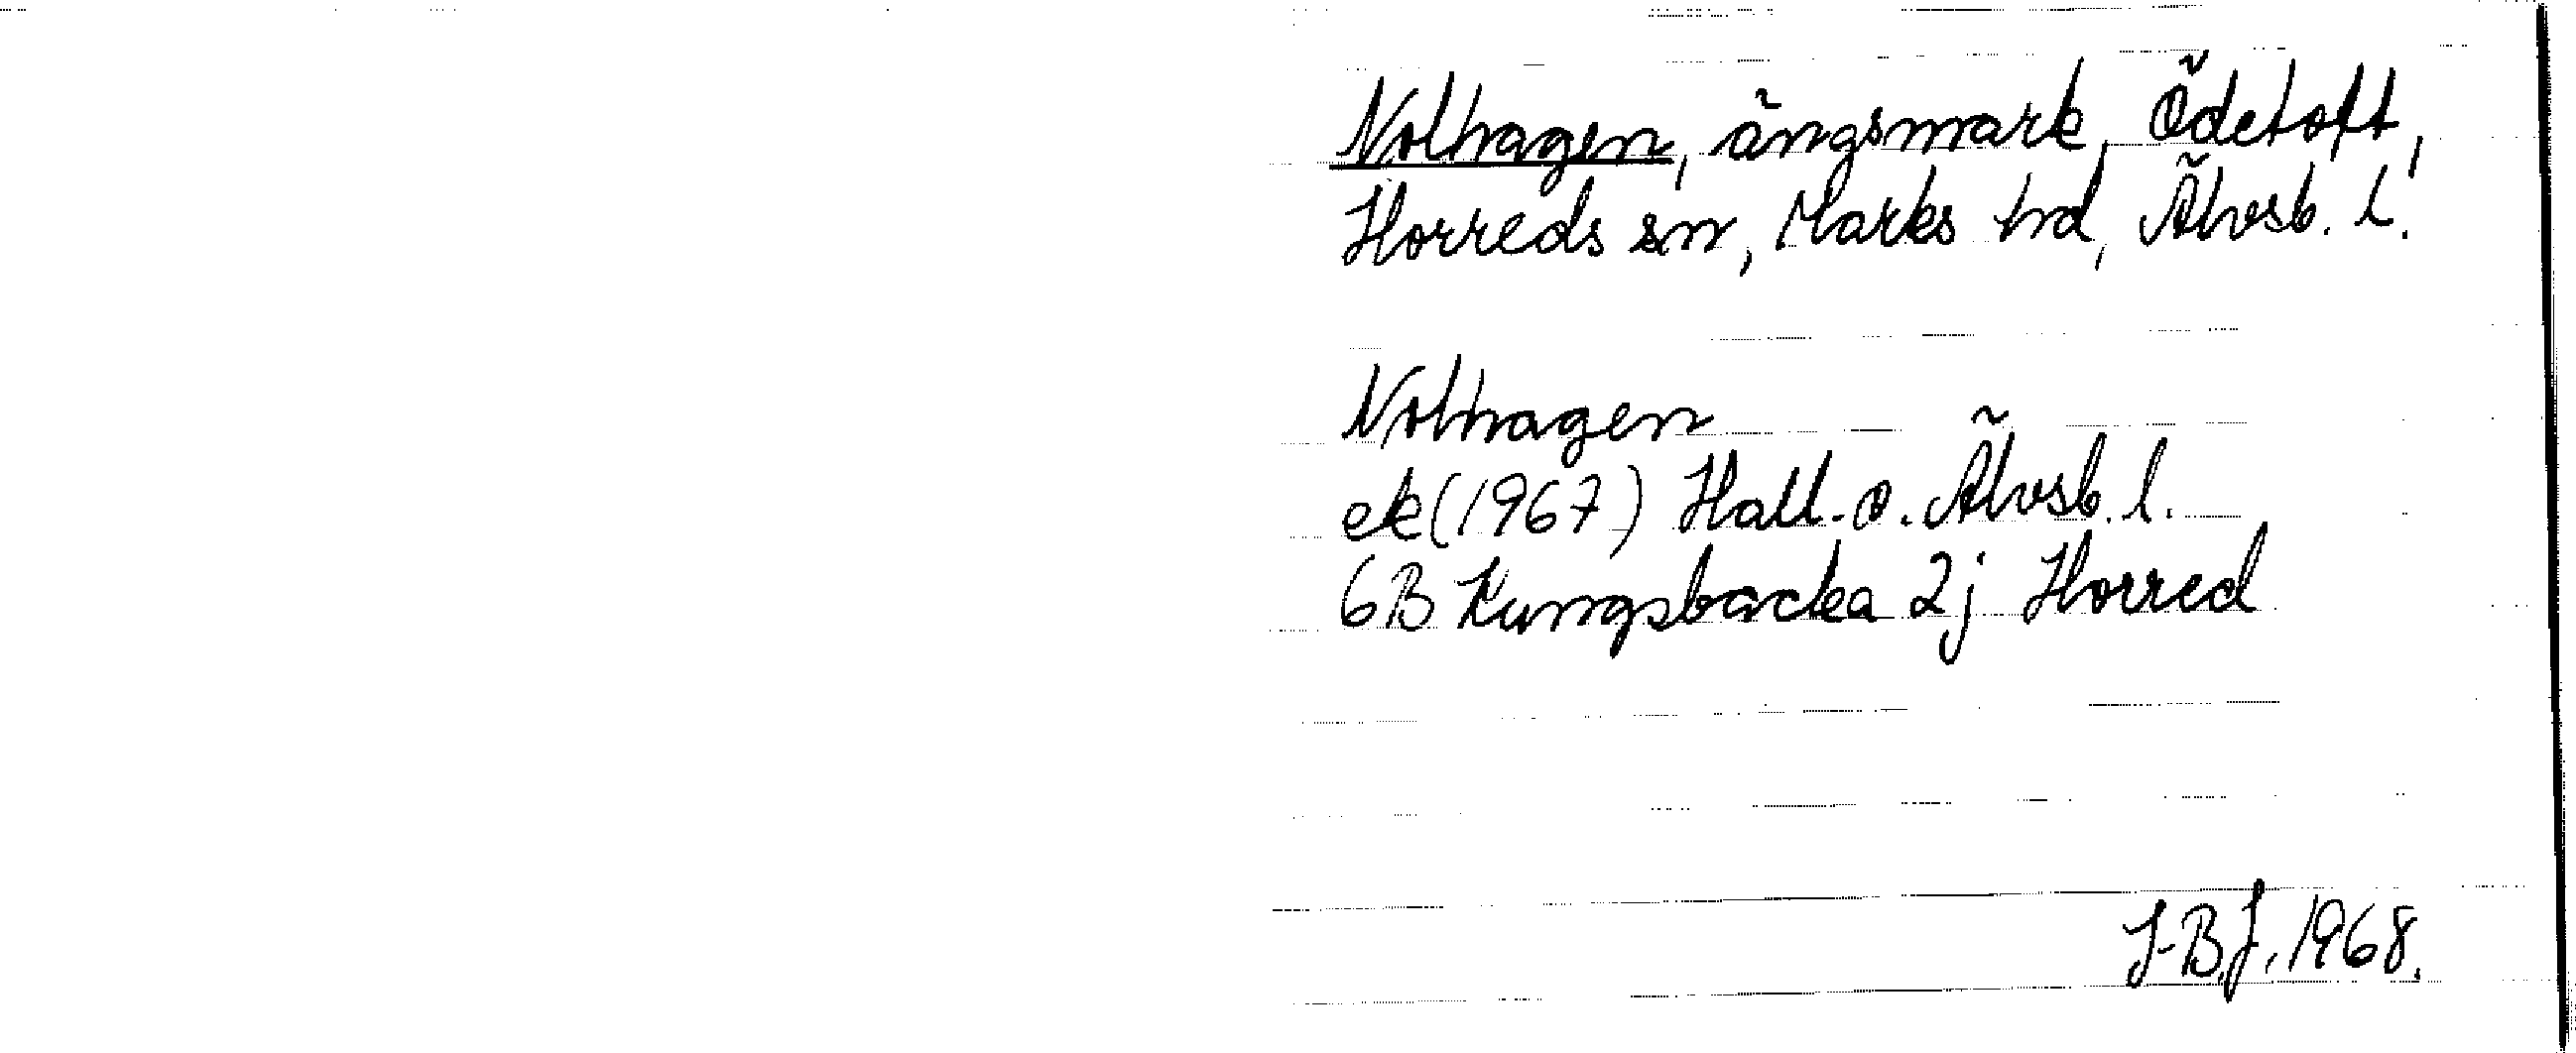 Nolhagen, ängsmark, Ödetoft,
Horreds sn, Marks hd, Älvsb. l.
Nolhagen
ek (1967) Hall. o. Älvsb. l.
6B Kungsbacka 2j Horred
J-B.J. 1968.